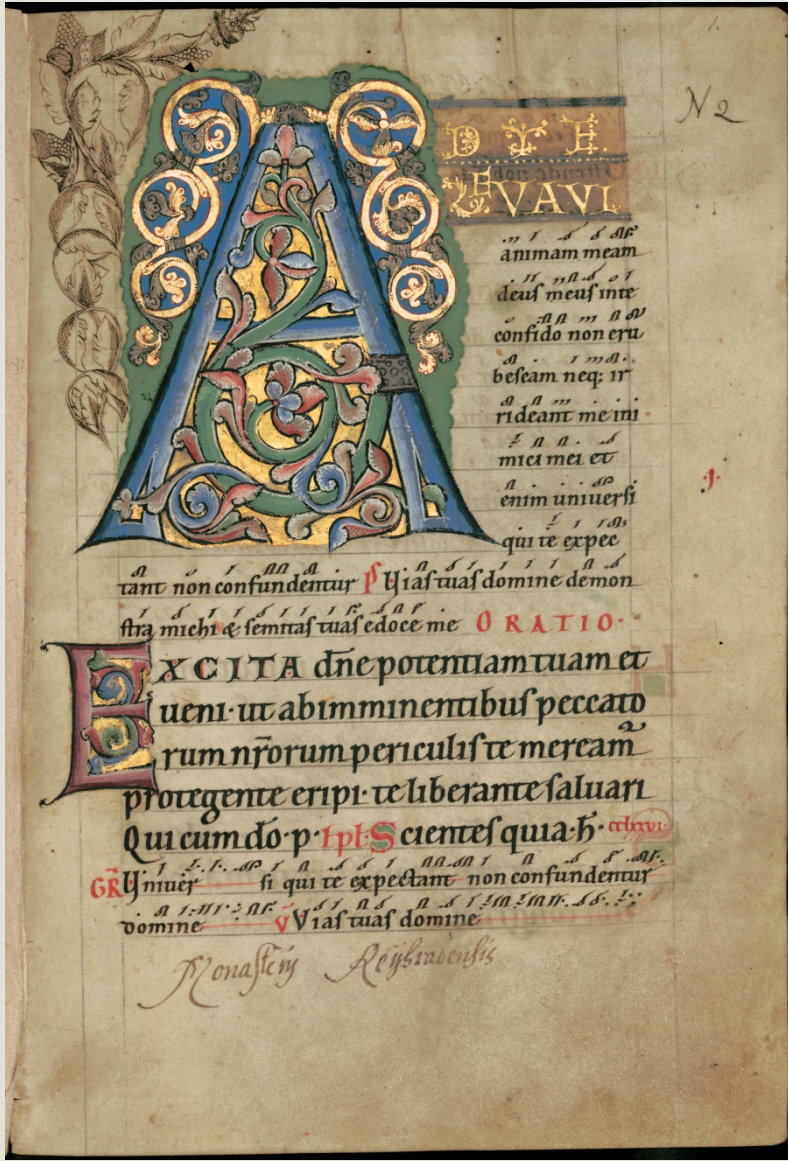 1.
N 2
AD TE
LEVAVI
animam meam
deus meus in te
confido non eru
bescam neq; ir
rideant me ini
mici mei et
enim universi
qui te expec
.I.
tant non confundentur Ps Vias tuas domine demon
stra michi & semitas tuas edoce me ORATIO.
EXCITA dn̄e potentiam tuam et
ueni· ut ab imminentibus peccato
rum nr̄orum periculis te meream̄
protegente eripi· te liberante saluari
Qui cum dō·p· Ipl· Scientes quia·h̄· cclxxvi·
GR̄ Vniuer si qui te expectant non confundentur
domine V Vias tuas domine
Monasterij Reÿhradensis